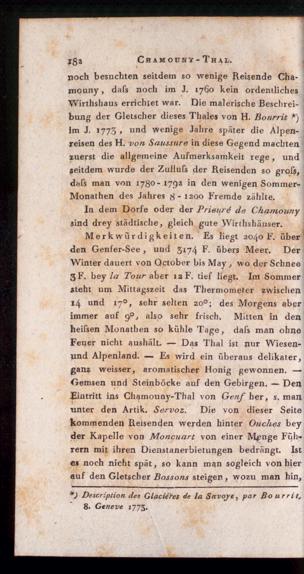 182 CHAMOUNY-THAL.
noch besuchten seitdem so wenige Reisende Cha-
mouny, daſs noch im J. 1760 kein ordentliches
Wirthshaus errichtet war. Die malerische Beschrei-
bung der Gletscher dieses Thales von H. Bourrit *)
im J. 1773, und wenige Jahre später die Alpen-
reisen des H. von Saussure in diese Gegend machten
zuerst die allgemeine Aufmerksamkeit rege, und
seitdem wurde der Zufluſs der Reisenden so groſs,
daſs man von 1780-1792 in den wenigen Sommer-
Monathen des Jahres 8-1200 Fremde zählte.
In dem Dorfe oder der Prieuré de Chamouny
sind drey städtische, gleich gute Wirthshäuser.
Merkwürdigkeiten. Es liegt 2040 F. über
den Genfer-See, und 3174 F. übers Meer. Der
Winter dauert von October bis May, wo der Schnee
3 F. bey la Tour aber 12 F. tief liegt. Im Sommer
steht um Mittagszeit das Thermometer zwischen
14 und 17°, sehr selten 20°; des Morgens aber
immer auf 9°, also sehr frisch. Mitten in den
heiſsen Monathen so kühle Tage, daſs man ohne
Feuer nicht aushält. — Das Thal ist nur Wiesen-
und Alpenland. — Es wird ein überaus delikater,
ganz weisser, aromatischer Honig gewonnen. —
Gemsen und Steinböcke auf den Gebirgen. — Den
Eintritt ins Chamouny-Thal von Genf her, s. man
unter den Artik. Servoz. Die von dieser Seite
kommenden Reisenden werden hinter Ouches bey
der Kapelle von Moncuart von einer Menge Füh-
rern mit ihren Dienstanerbietungen bedrängt. Ist
es noch nicht spät, so kann man sogleich von hier
auf den Gletscher Bossons steigen, wozu man hin,
*) Description des Glacières de la Savoye, par Bourrit,
8. Geneve 1773.